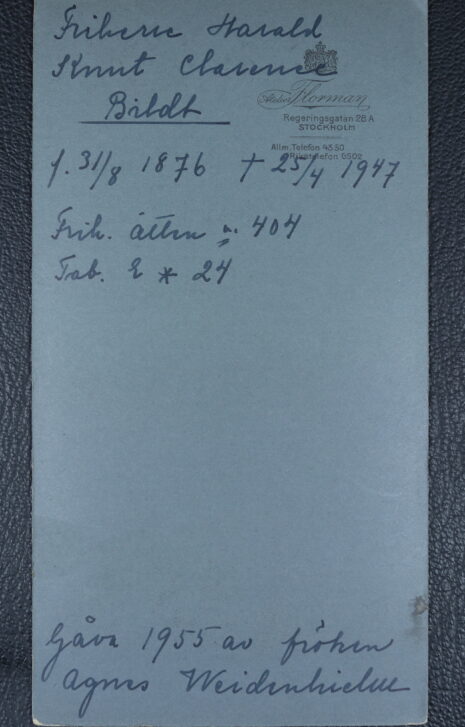 Friherre Harald
Knut Clarence
Bildt
Atelier Florman
Regeringsgatan 28 A
STOCKHOLM
Allm. Telefon 4530
Rikstelefon 6502
f. 31/8 1876 † 25/4 1947
Frih. ätten n. 404
Tab. E * 24
Gåva 1955 av fröken
Agnes Weidenhielm